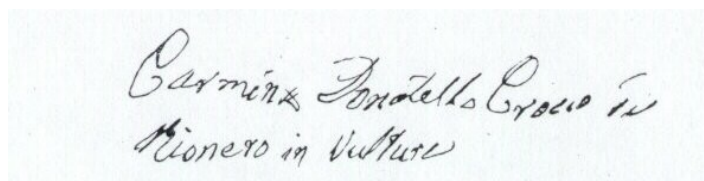 Carmine Donatello Crocco di
Rionero in Vulture